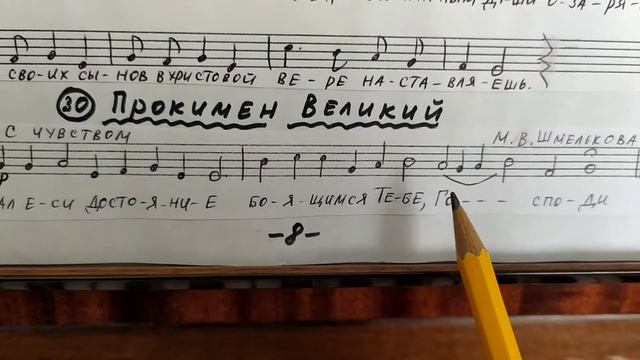 СВО-ИХ СЫ-НОВ В ХРИСТОВОЙ ВЕ-РЕ НА-СТА-ВЛЯ-ЕШЬ.
30 ПРОКИМЕН ВЕЛИКИЙ
С ЧУВСТВОМ М.В. ШМЕЛЬКОВА
АЛ Е-СИ ДОСТО-Я-НИ-Е БО-Я-ЩИМСЯ ТЕ-БЕ, ГО- - - - СПО-ДИ
-8-